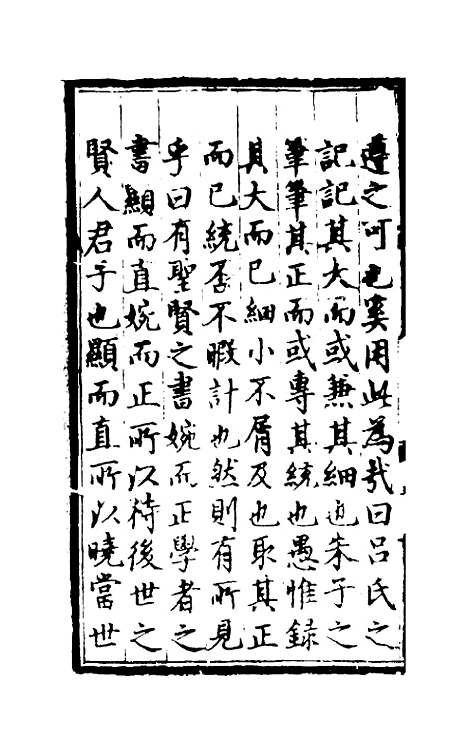 遵之可也奚用此為哉曰呂氏之
記記其大而或兼其細也朱子之
筆筆其正而或專其統也愚惟錄
其大而已細小不屑及也取其正
而已統否不暇計也然則有所見
乎曰有聖賢之書婉而正學者之
書顯而直婉而正所以待後世之
賢人君子也顯而直所以曉當世